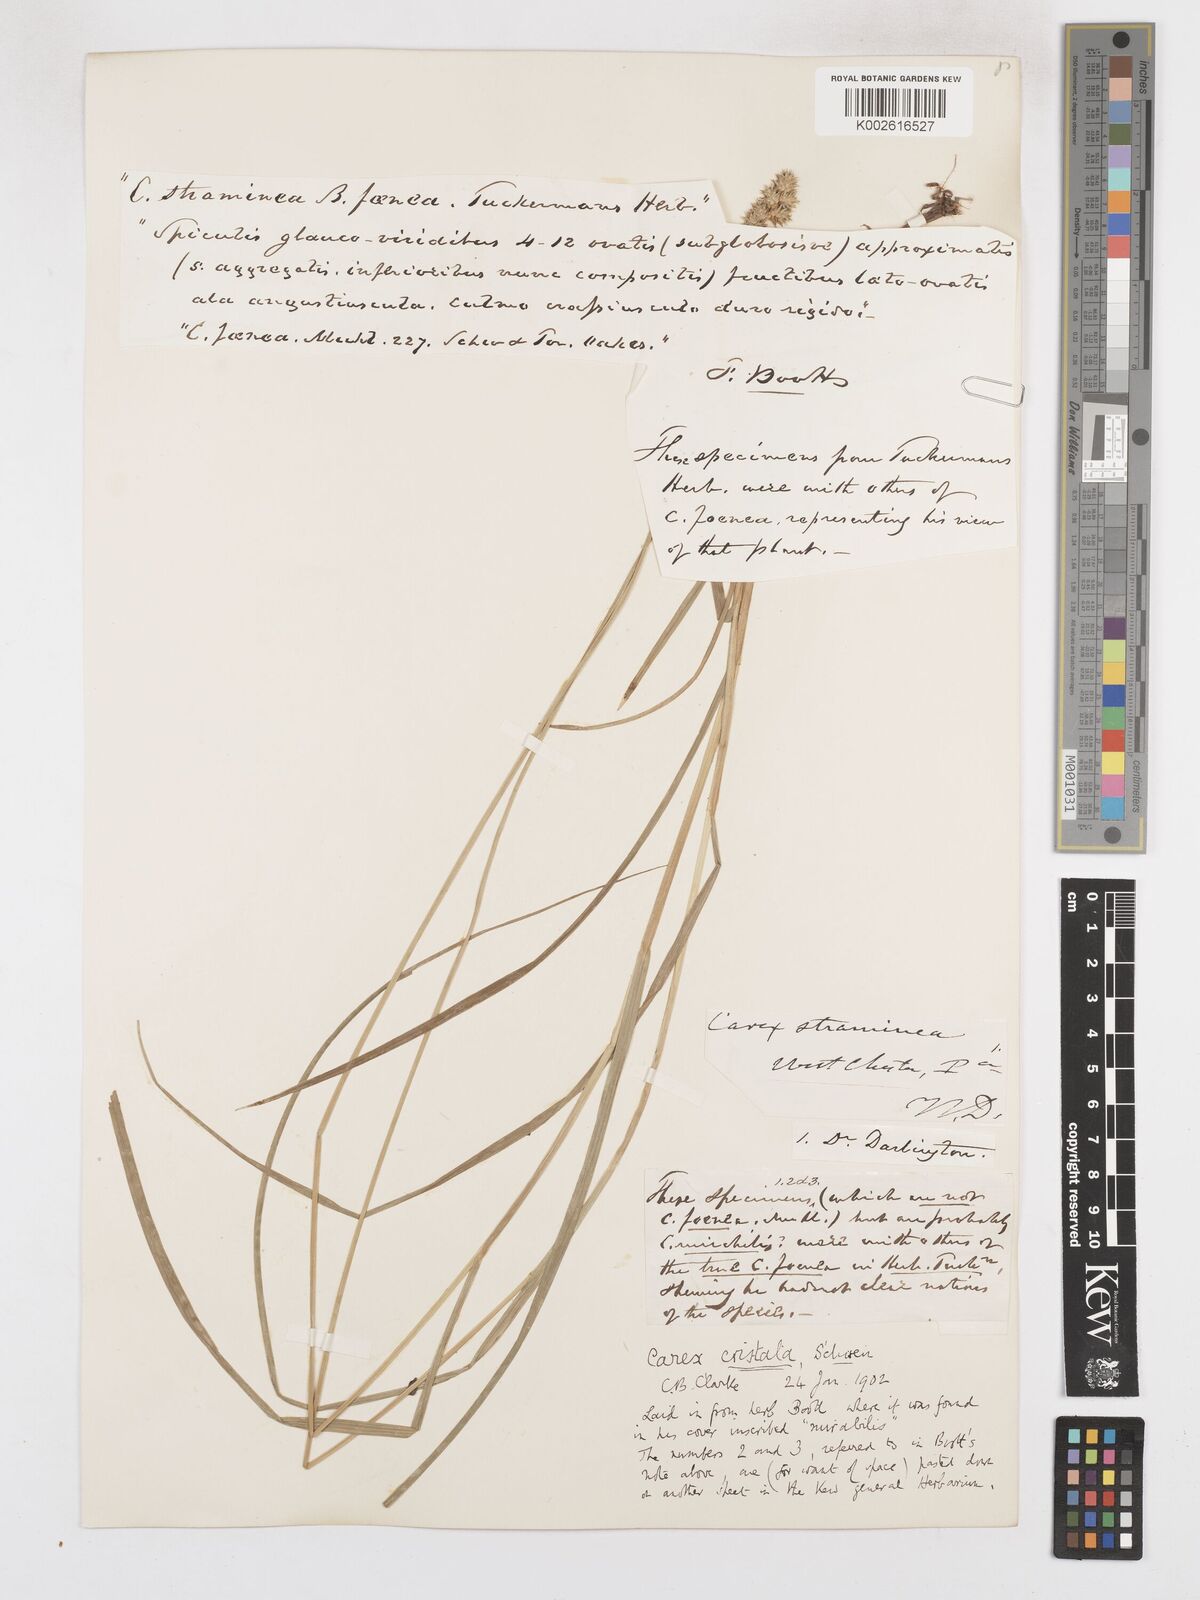 ROYAL BOTANIC GARDENS KEW
K002616527
"C. straminea B. fœnea. Tuckermans Herb."
"Spiculis glauco-viridibus 4-12 ovatis (subglobosisve) approximatis
(s. aggregatis. inferioribus nunc compositis) fructibus lato-ovatis
ala angustiuscula. culmo crassiusculo duro rigido"-
"C. fœnea. Muhl. 227. Schw & Tor. Oakes."
F. Boott
These specimens from Tuckermans
Herb. were with others of
C. foenea, representing his view
of that plant.-
Carex straminea
West Chester, Pa
1.
W.D.
1. Dr Darlington.
These specimens, 1.2&3. (which are not
C. foenea, Muhl.) but are probably
C. mirabilis? were with others of
the true C. foenea in Herb. Tuckn,
shewing he had not clear notions
of the species.-
Carex cristata, Schwein
C.B. Clarke 24 Jan. 1902
Laid in from herb Boott where it was found
in his cover inscribed "mirabilis"
The numbers 2 and 3, referred to in Boott's
note above, are (for want of space) pasted down
on another sheet in the Kew general Herbarium.
inches
Don Williams
centimeters
M001031
cm
0 1 2 3 4 5 6 7 8 9 10
copyright reserved
Royal Botanic Gardens
Kew